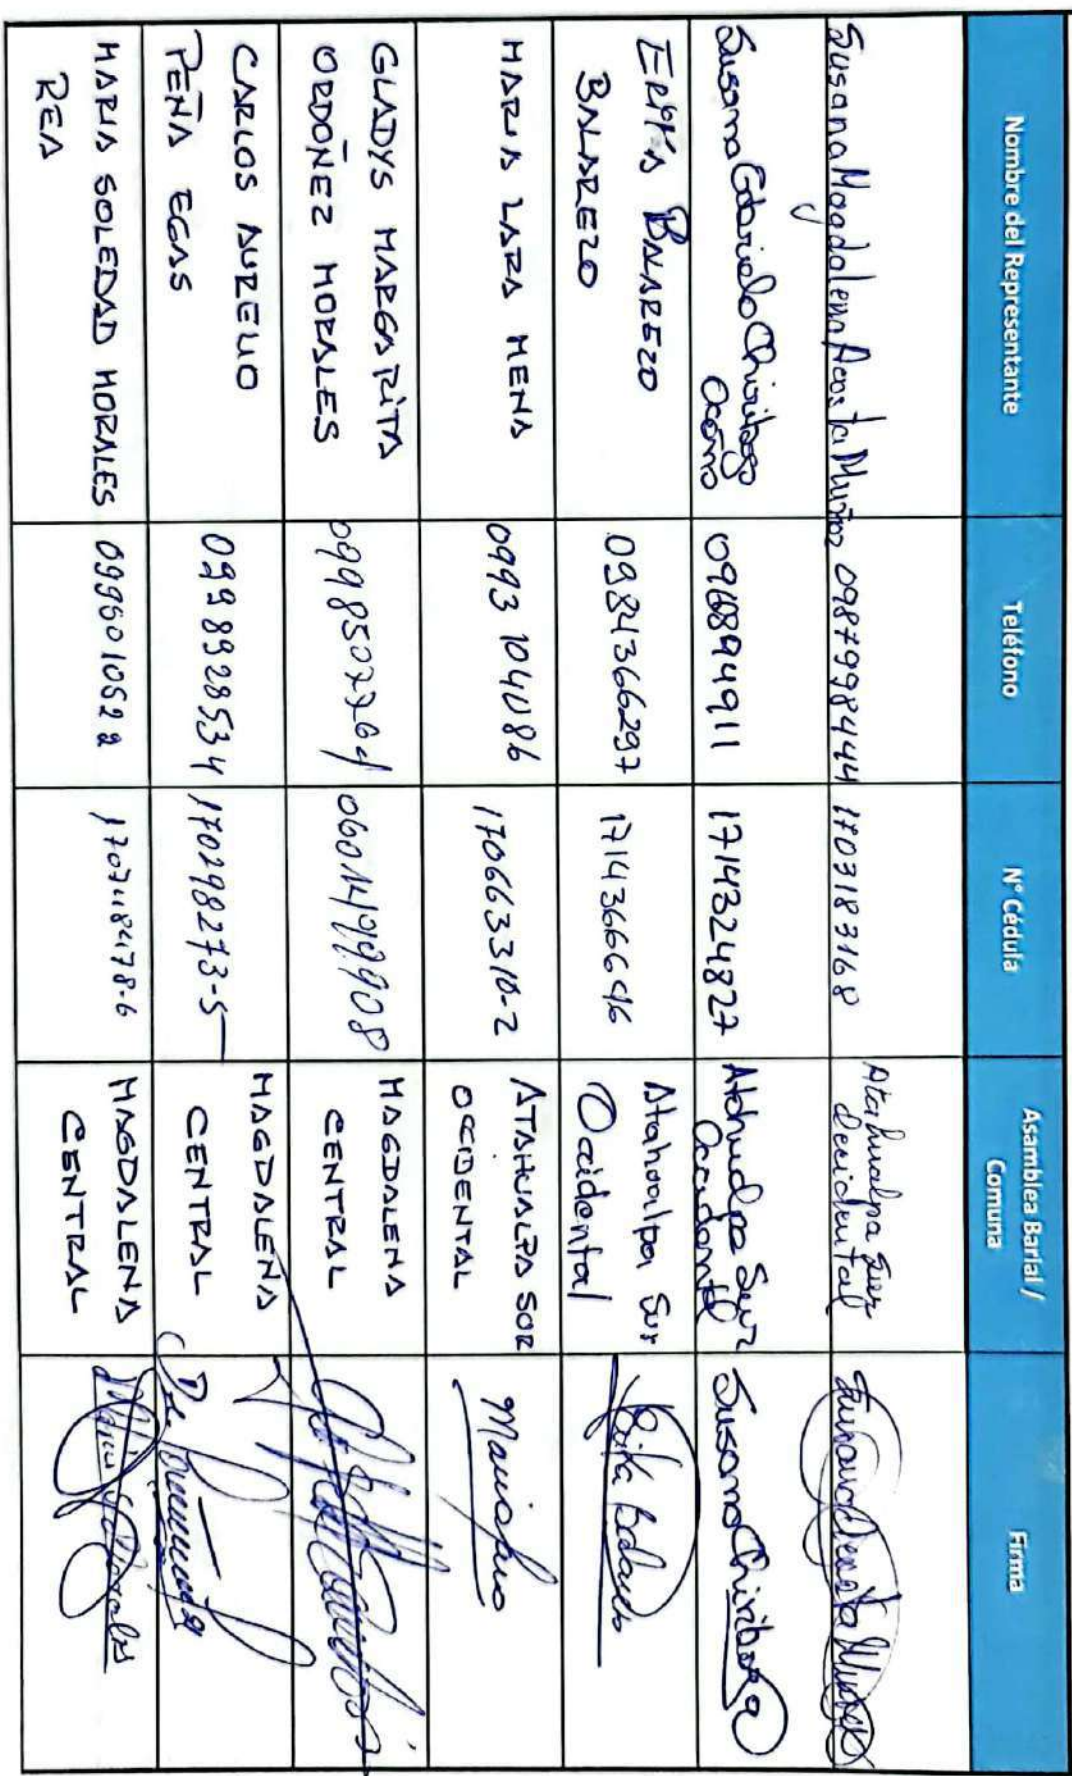 Nombre del Representante
Teléfono
N° Cédula
Asamblea Barial /
Comuna
Firma
Susana Magdalena Acosta Muñoz
0987998444
1703183168
Atahualpa Sur
Occidental
Susana Gabriela Chiriboga
Ocaña
0968894911
1714324827
Atahualpa Sur
Occidental
Susana Chiriboga
ERIKA BALAREZO
BALAREZO
0984366297
1714366646
Atahualpa Sur
Occidental
Erika Balarezo
MARIA LARA MENA
0993104086
170663310-2
ATAHUALPA SUR
OCCIDENTAL
GLADYS MARGARITA
ORDOÑEZ MORALES
0601499908
MAGDALENA
CENTRAL
CARLOS AURELIO
PEÑA EGAS
0998928534
170298273-5
MAGDALENA
CENTRAL
MARIA SOLEDAD MORALES
REA
MAGDALENA
CENTRAL